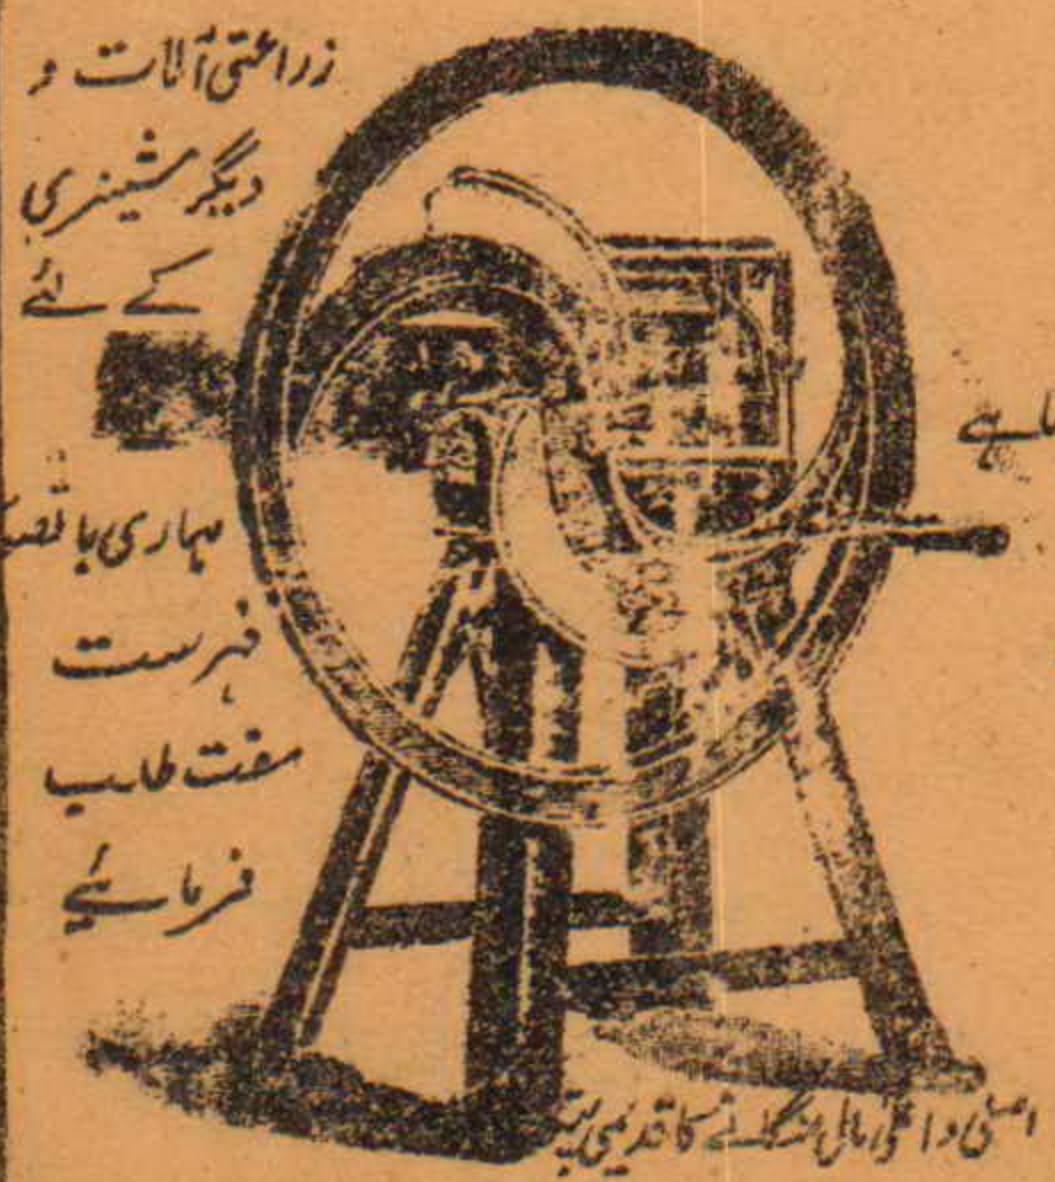 زراعتی آلات و
دیگر مشینری
کے لئے
ہماری با
فہرست
مفت طلب
فرمائیے
ہے
اصلی و اعلیٰ مال منگانے کا قدیمی پتہ